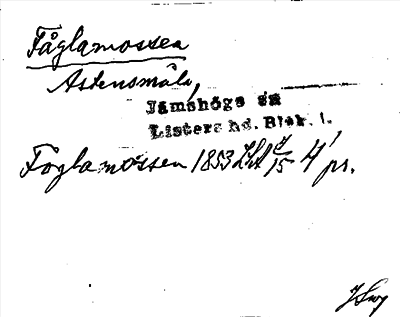 Fåglamossen
Astensmåla,
Jämshögs sn
Listers hd. Blek. l.
Foglamossen 1853 4 pr.